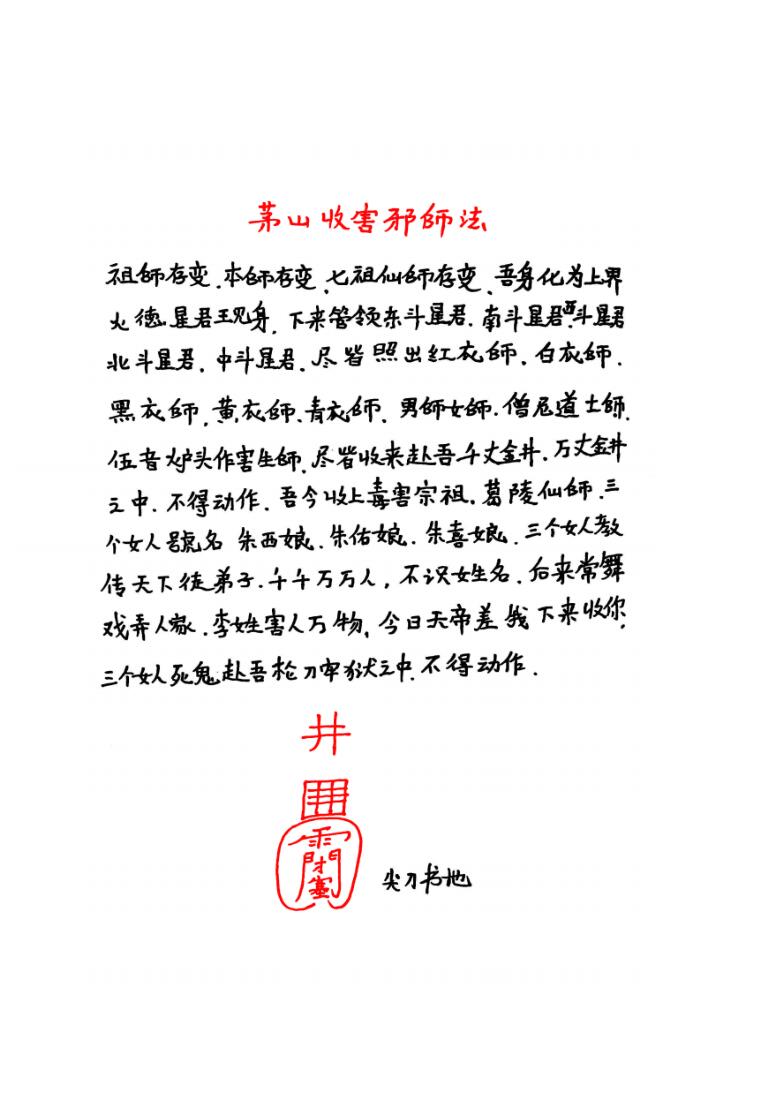 茅山收害邪師法
祖師存变.本師存变.七祖仙師存变.吾身化为上界
火德星君现身.下来管领东斗星君.南斗星君.西斗星君
北斗星君.中斗星君.尽皆照出红衣師.白衣師.
黑衣師.黄衣師.青衣師.男師女師.僧尼道士師.
伍音炉头作害生師.尽皆收来赴吾千丈金井.万丈金井
之中.不得动作.吾今收上毒害宗祖.葛陵仙師.三
个女人號名 朱西娘.朱佑娘.朱喜娘.三个女人教
传天下徒弟子.千千万万人,不识姓名.后来常舞
戏弄人家.李姓害人万物,今日天帝差我下来收你,
三个女人死鬼赴吾枪刀牢狱之中.不得动作.
井
尖刀书地